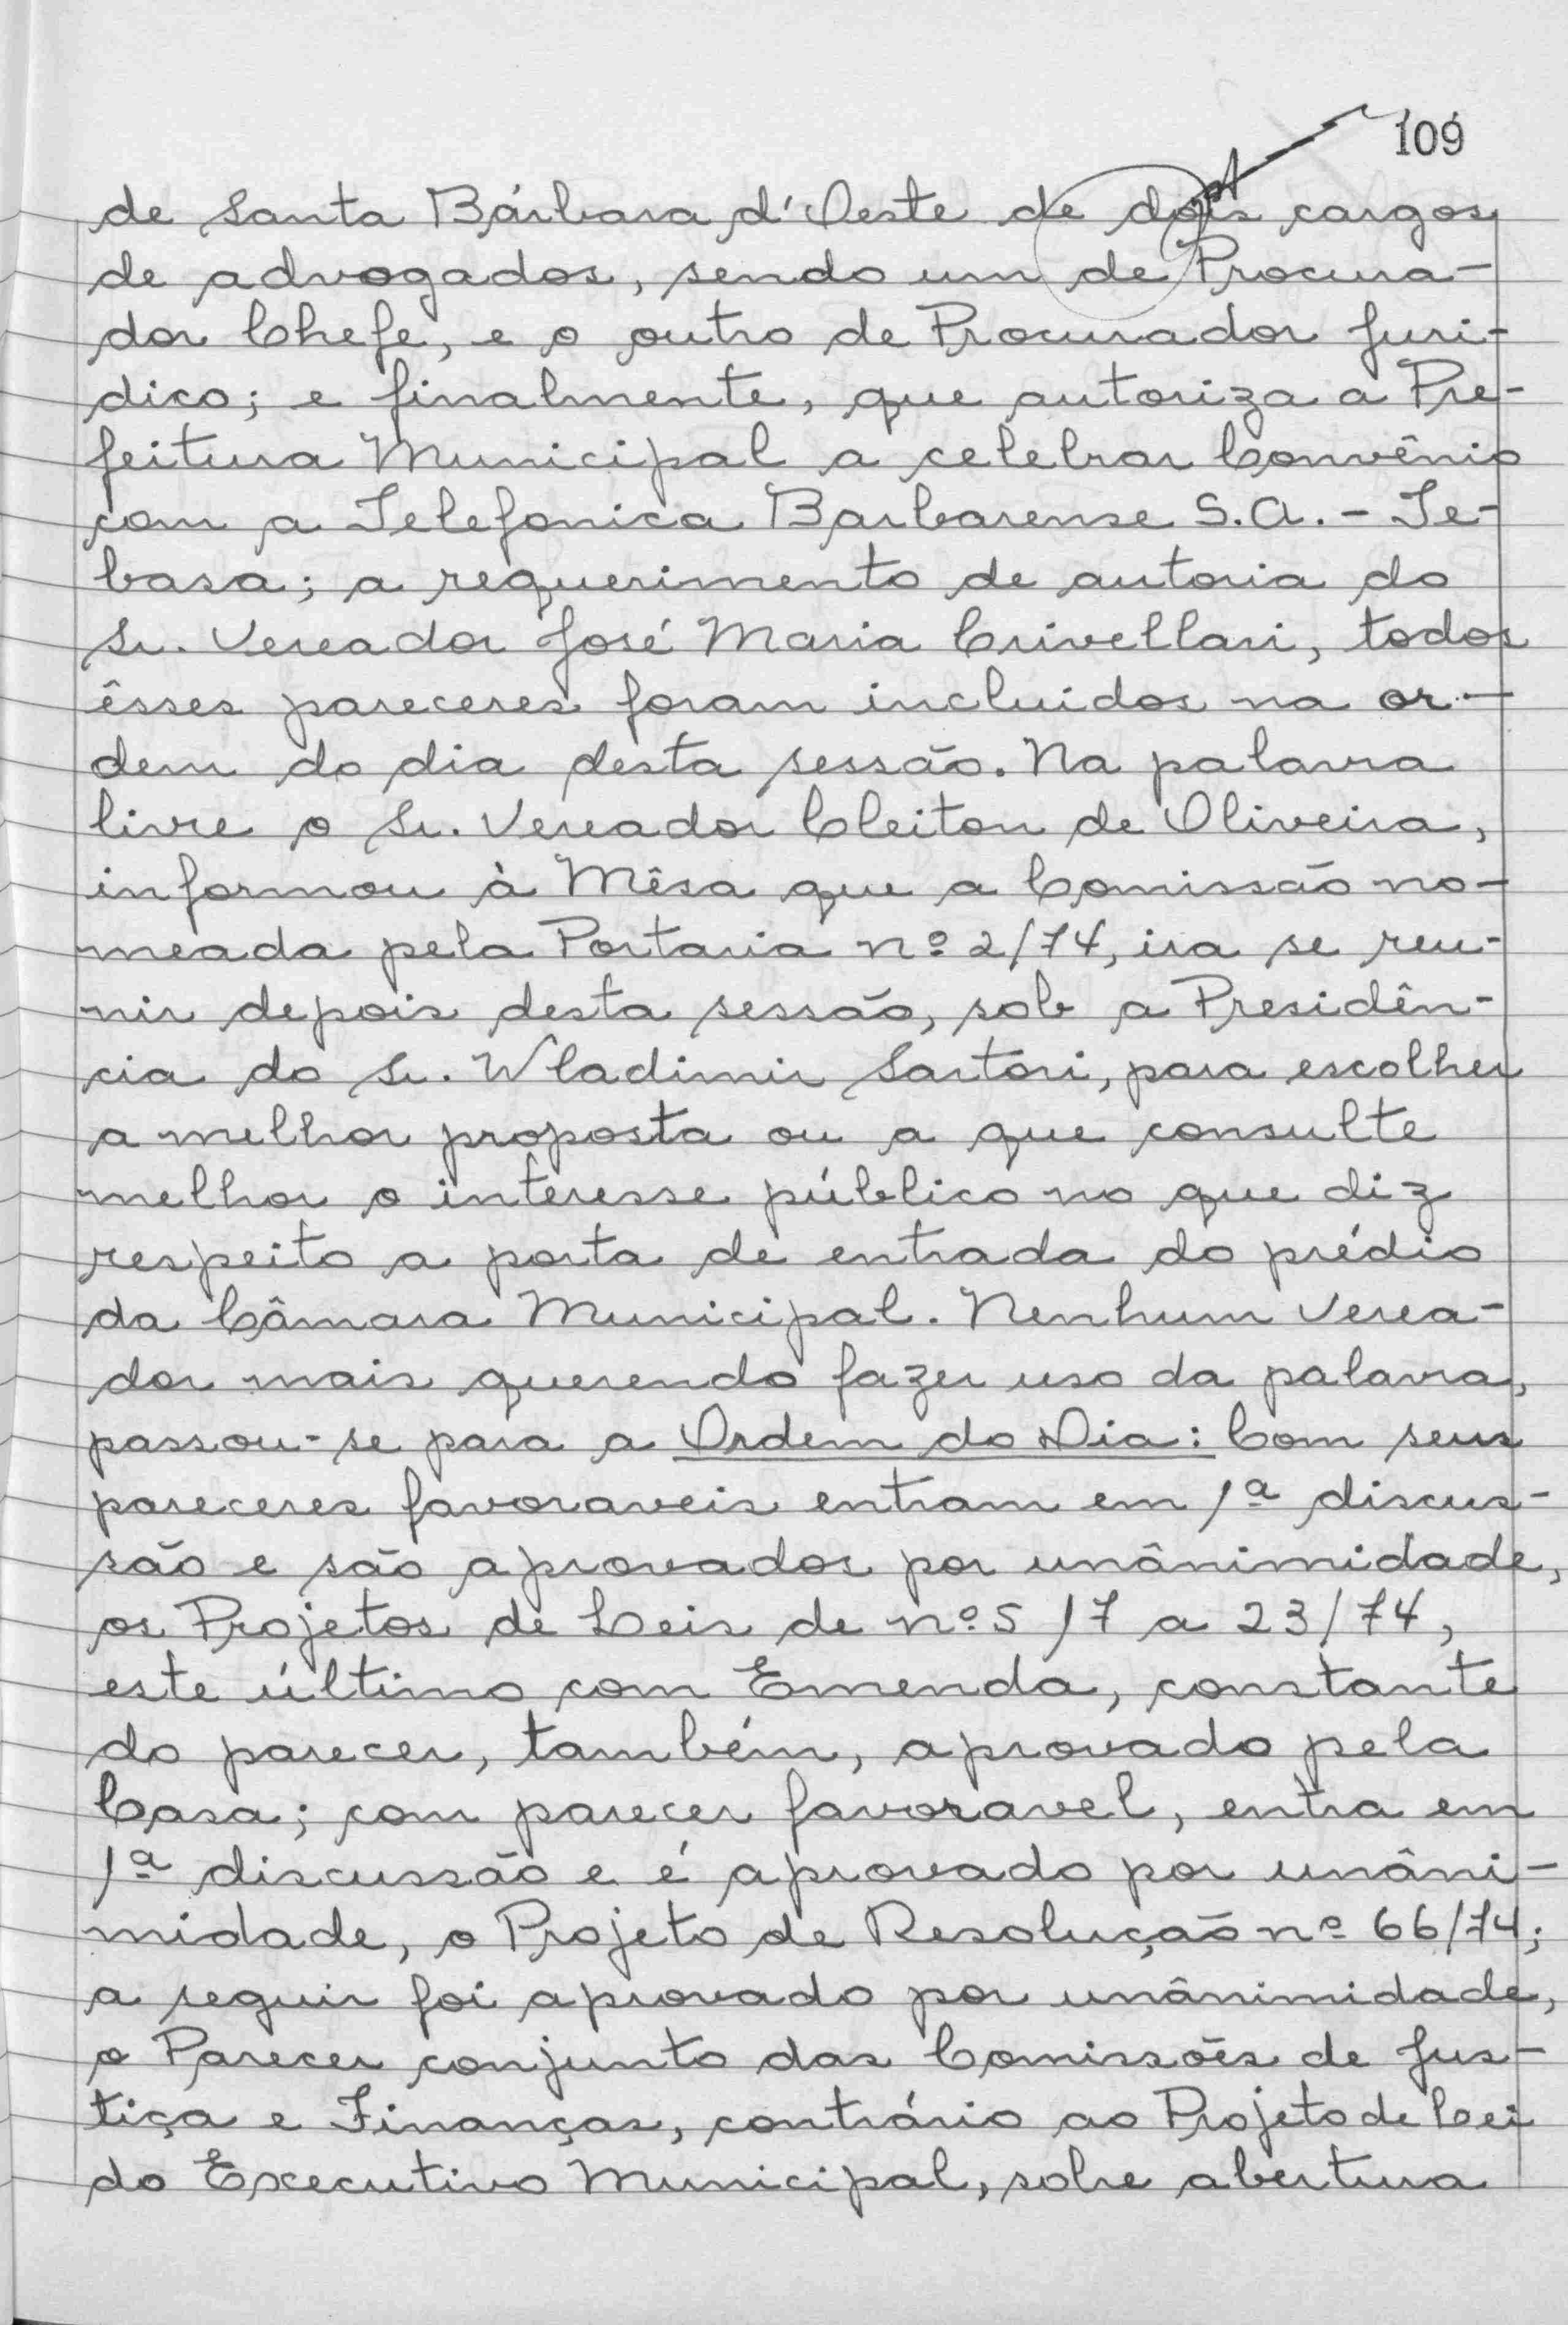 109
de Santa Bárbara d'Oeste de dois cargos
de advogados, sendo um de Procura-
dor Chefe, e o outro de Procurador Juri-
dico; e finalmente, que autoriza a Pre-
feitura Municipal a celebrar Convênio
com a Telefonica Barbarense S.A. - Te-
basa; a requerimento de autoria do
Sr. Vereador José Maria Crivellari, todos
êsses pareceres foram incluidos na or-
dem do dia desta sessão. Na palavra
livre o Sr. Vereador Cleiton de Oliveira,
informou à Mêsa que a Comissão no-
meada pela Portaria nº 2/74, ira se reu-
nir depois desta sessão, sob a Presidên-
cia do Sr. Wladimir Sartori, para escolher
a melhor proposta ou a que consulte
melhor o interesse público no que diz
respeito a porta de entrada do prédio
da Câmara Municipal. Nenhum Verea-
dor mais querendo fazer uso da palavra,
passou-se para a Ordem do Dia: Com seus
pareceres favoraveis entram em 1ª discus-
são e são aprovados por unânimidade,
os Projetos de Leis de nº5 17 a 23/74,
este último com Emenda, constante
do parecer, também, aprovado pela
Casa; com parecer favoravel, entra em
1ª discussão e é aprovado por unâni-
midade, o Projeto de Resolução nº 66/74;
a seguir foi aprovado por unânimidade,
o Parecer conjunto das Comissões de Jus-
tiça e Finanças, contrário ao Projeto de Lei
do Executivo Municipal, sobre abertura